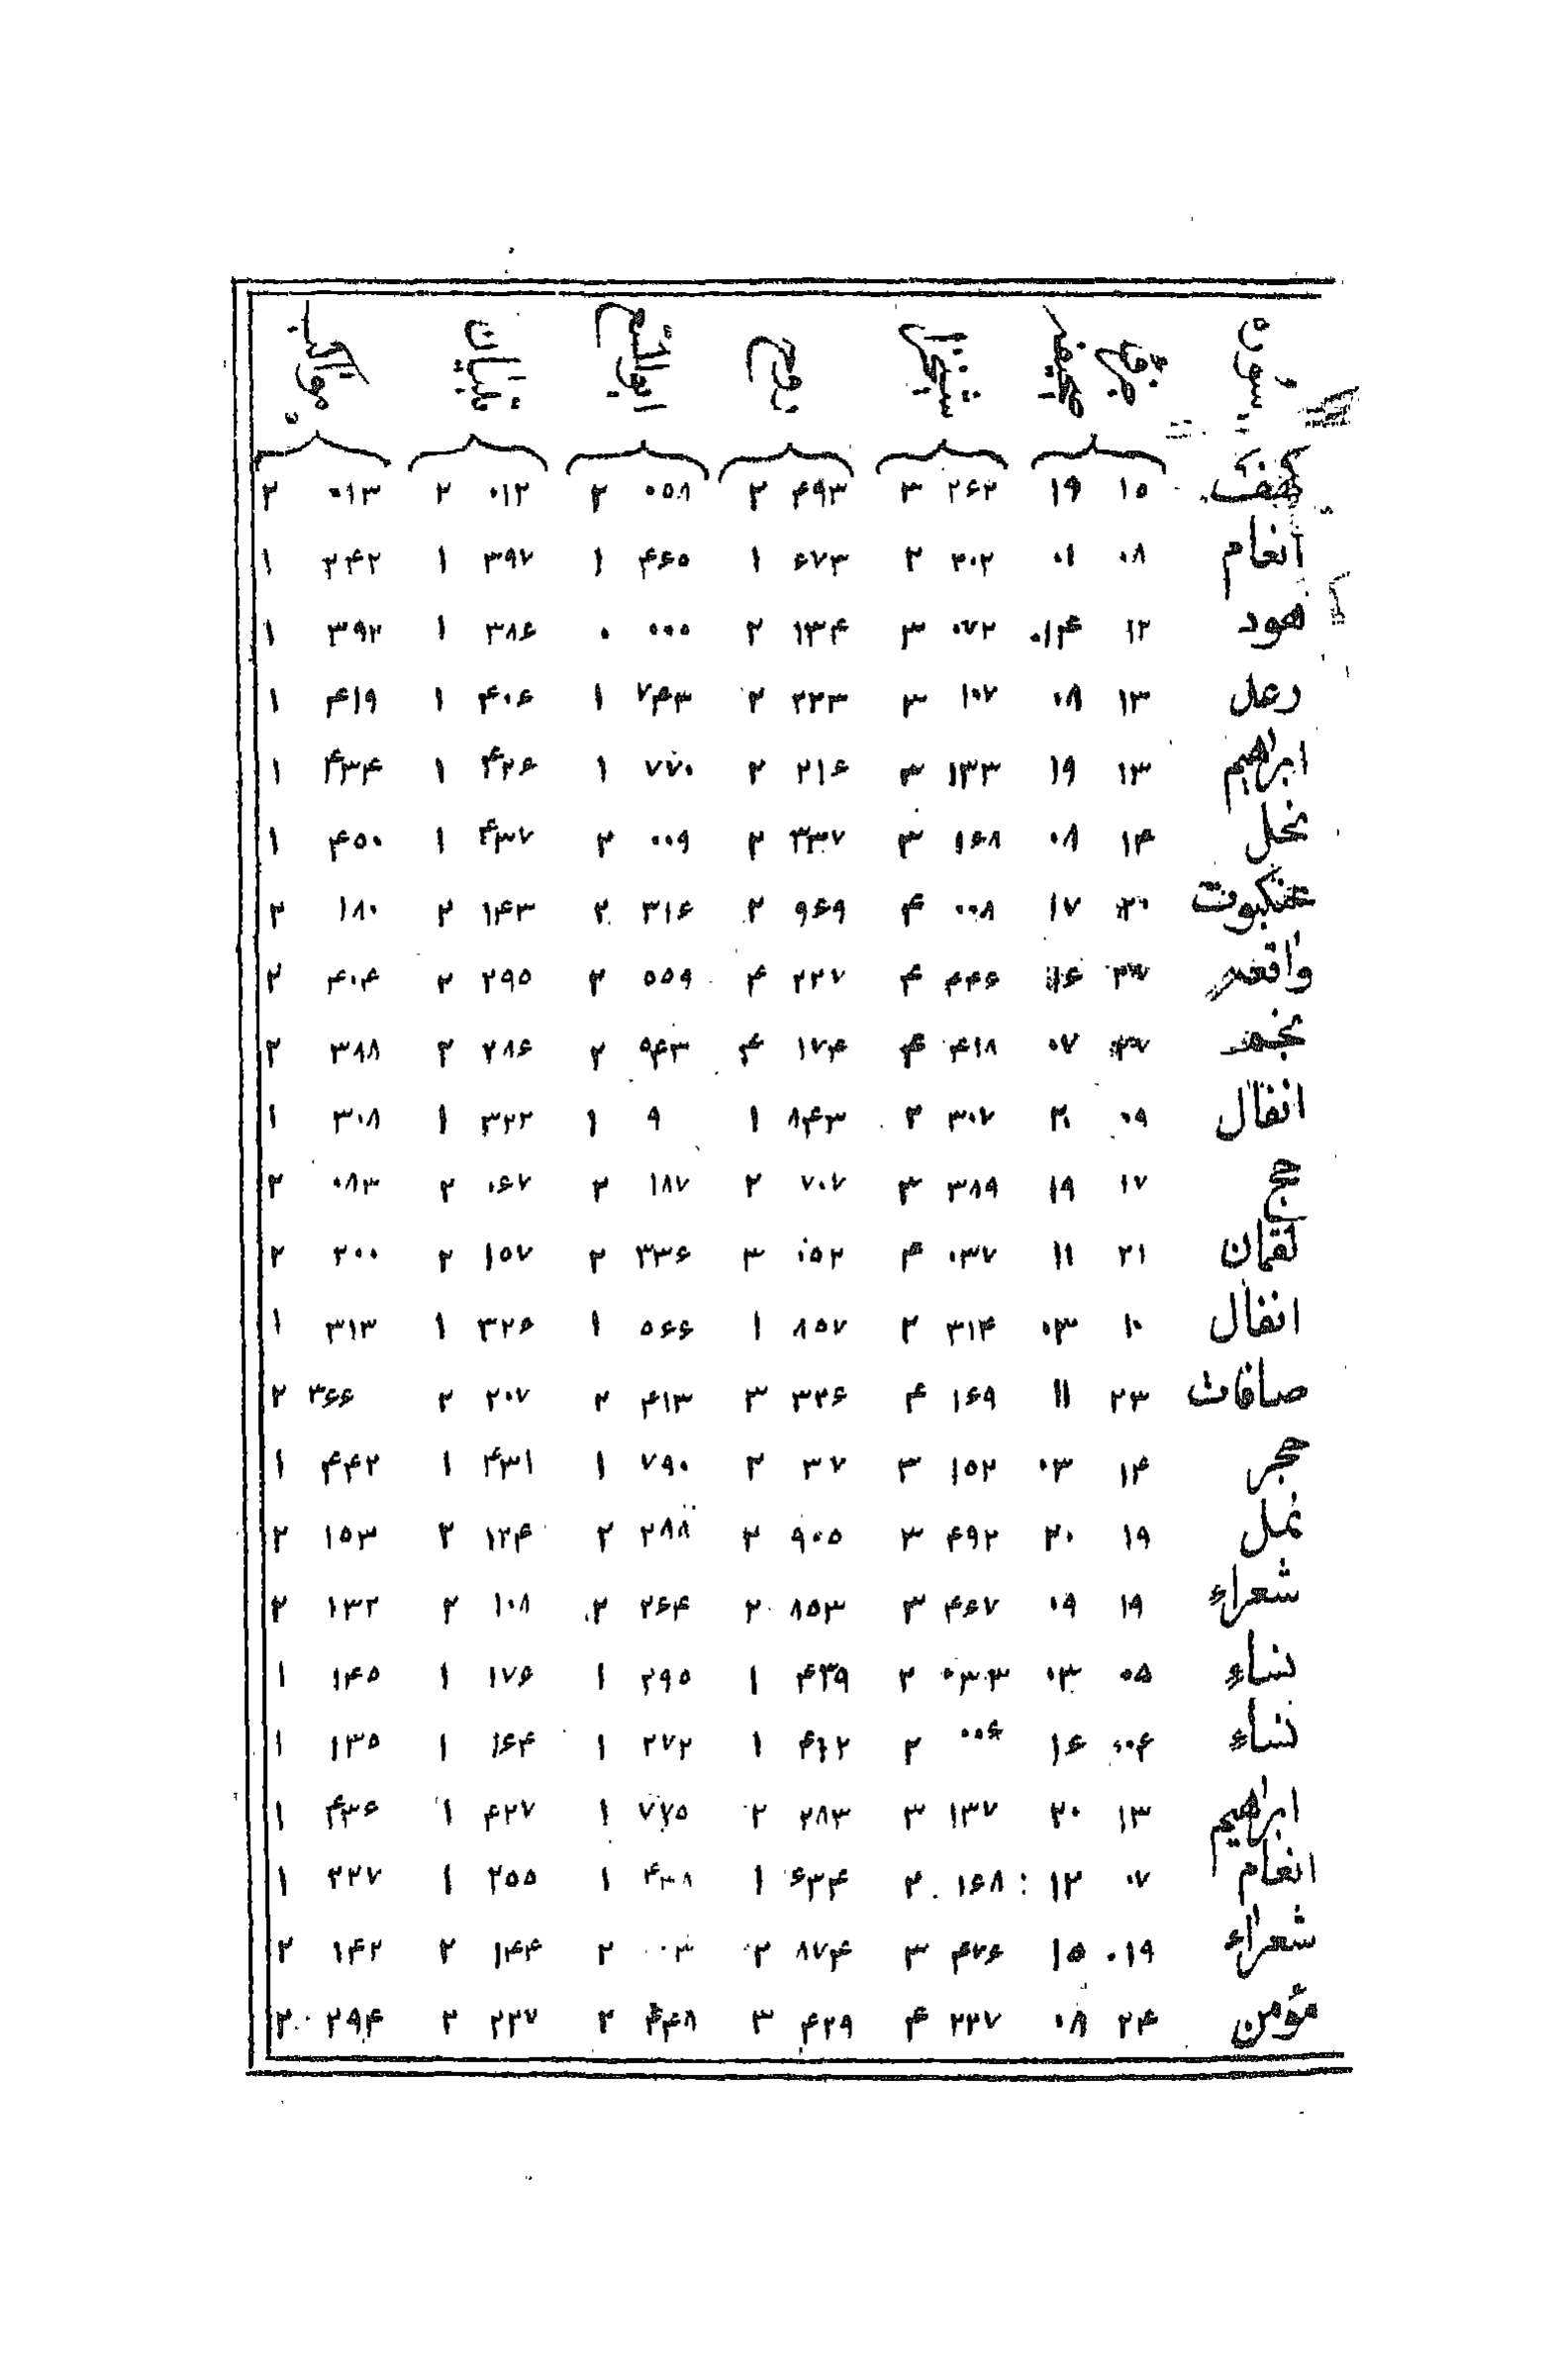 کهف ۱۵ ۱۹ ۲۶۲ ۳ ۴۹۳ ۲ ۰۵۸ ۲ ۰۱۲ ۲ ۰۱۳ ۲
انعام ۰۸ ۰۱ ۲۰۲ ۲ ۶۷۳ ۱ ۴۶۵ ۱ ۳۹۷ ۱ ۲۴۲ ۱
هود ۱۲ ۰۱۴ ۰۷۲ ۳ ۱۳۴ ۲ ۰۰۰ ۰ ۳۸۶ ۱ ۳۹۲ ۱
رعل ۱۳ ۰۸ ۱۰۷ ۳ ۲۲۳ ۲ ۷۴۳ ۱ ۴۰۶ ۱ ۴۱۹ ۱
ابراهیم ۱۳ ۱۹ ۱۳۳ ۳ ۲۱۶ ۲ ۷۷۰ ۱ ۴۲۶ ۱ ۴۳۴ ۱
نحل ۱۴ ۰۸ ۱۶۸ ۳ ۳۳۷ ۲ ۰۰۹ ۲ ۴۳۷ ۱ ۴۵۰ ۱
عنکبوت ۲۰ ۱۷ ۰۰۸ ۴ ۹۶۹ ۲ ۳۱۶ ۲ ۱۴۳ ۲ ۱۸۰ ۲
واقعه ۱۶ ۴۴۶ ۴ ۲۲۷ ۴ ۵۵۹ ۲ ۲۹۵ ۲ ۴۰۴ ۲
نجم ۰۷ ۴۱۸ ۴ ۱۷۴ ۴ ۹۴۳ ۲ ۲۸۶ ۲ ۳۸۸ ۲
انفال ۰۹ ۲۰ ۳۰۷ ۲ ۸۴۳ ۱ ۹ ۱ ۳۲۲ ۱ ۳۰۸ ۱
حج ۱۷ ۱۹ ۳۸۹ ۳ ۷۰۷ ۲ ۱۸۷ ۲ ۰۶۷ ۲ ۰۸۳ ۲
لقمان ۲۱ ۱۱ ۰۳۷ ۴ ۰۵۲ ۳ ۳۳۶ ۲ ۱۵۷ ۲ ۲۰۰ ۲
انفال ۱۰ ۰۳ ۳۱۴ ۲ ۸۵۷ ۱ ۵۶۶ ۱ ۳۲۶ ۱ ۳۱۳ ۱
صافات ۲۳ ۱۱ ۱۶۹ ۴ ۳۳۶ ۳ ۴۱۳ ۲ ۲۰۷ ۲ ۳۶۶ ۲
حجر ۱۴ ۰۳ ۱۵۲ ۳ ۳۷ ۲ ۷۹۰ ۱ ۴۳۱ ۱ ۴۴۲ ۱
نمل ۱۹ ۲۰ ۴۹۲ ۳ ۹۰۵ ۲ ۲۸۸ ۲ ۱۲۴ ۲ ۱۵۳ ۲
شعراء ۱۹ ۰۹ ۴۶۷ ۳ ۸۵۳ ۲ ۲۶۴ ۲ ۱۰۸ ۲ ۱۳۲ ۲
نساء ۰۵ ۰۳ ۰۳۳ ۲ ۴۳۹ ۱ ۲۹۵ ۱ ۱۷۶ ۱ ۱۴۵ ۱
نساء ۰۰۶ ۱۶ ۰۰۶ ۲ ۴۱۲ ۱ ۲۷۲ ۱ ۱۶۴ ۱ ۱۳۵ ۱
ابراهیم ۱۳ ۲۰ ۱۳۷ ۳ ۲۸۳ ۲ ۷۷۵ ۱ ۴۲۷ ۱ ۴۳۶ ۱
انعام ۰۷ ۱۲ ۱۶۸ ۲ ۶۳۴ ۱ ۴۳۸ ۱ ۲۵۵ ۱ ۲۲۷ ۱
شعراء ۰۱۹ ۱۵ ۴۷۶ ۳ ۸۷۴ ۲ ۰۳ ۲ ۱۴۴ ۲ ۱۴۲ ۲
مؤمن ۲۴ ۰۸ ۲۲۷ ۴ ۴۲۹ ۳ ۴۴۸ ۲ ۲۲۷ ۲ ۲۹۴ ۲